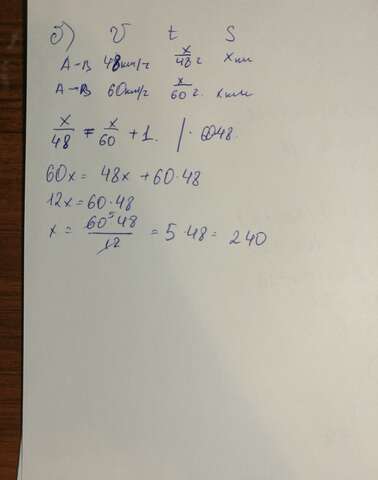 б) V t S
А-В 48км/ч x/48 ч x км
А-В 60км/ч x/60 ч. x км
x/48 = x/60 + 1. | · 60·48.
60x = 48x + 60·48
12x = 60·48
x = 60⁵·48/12 = 5·48 = 240